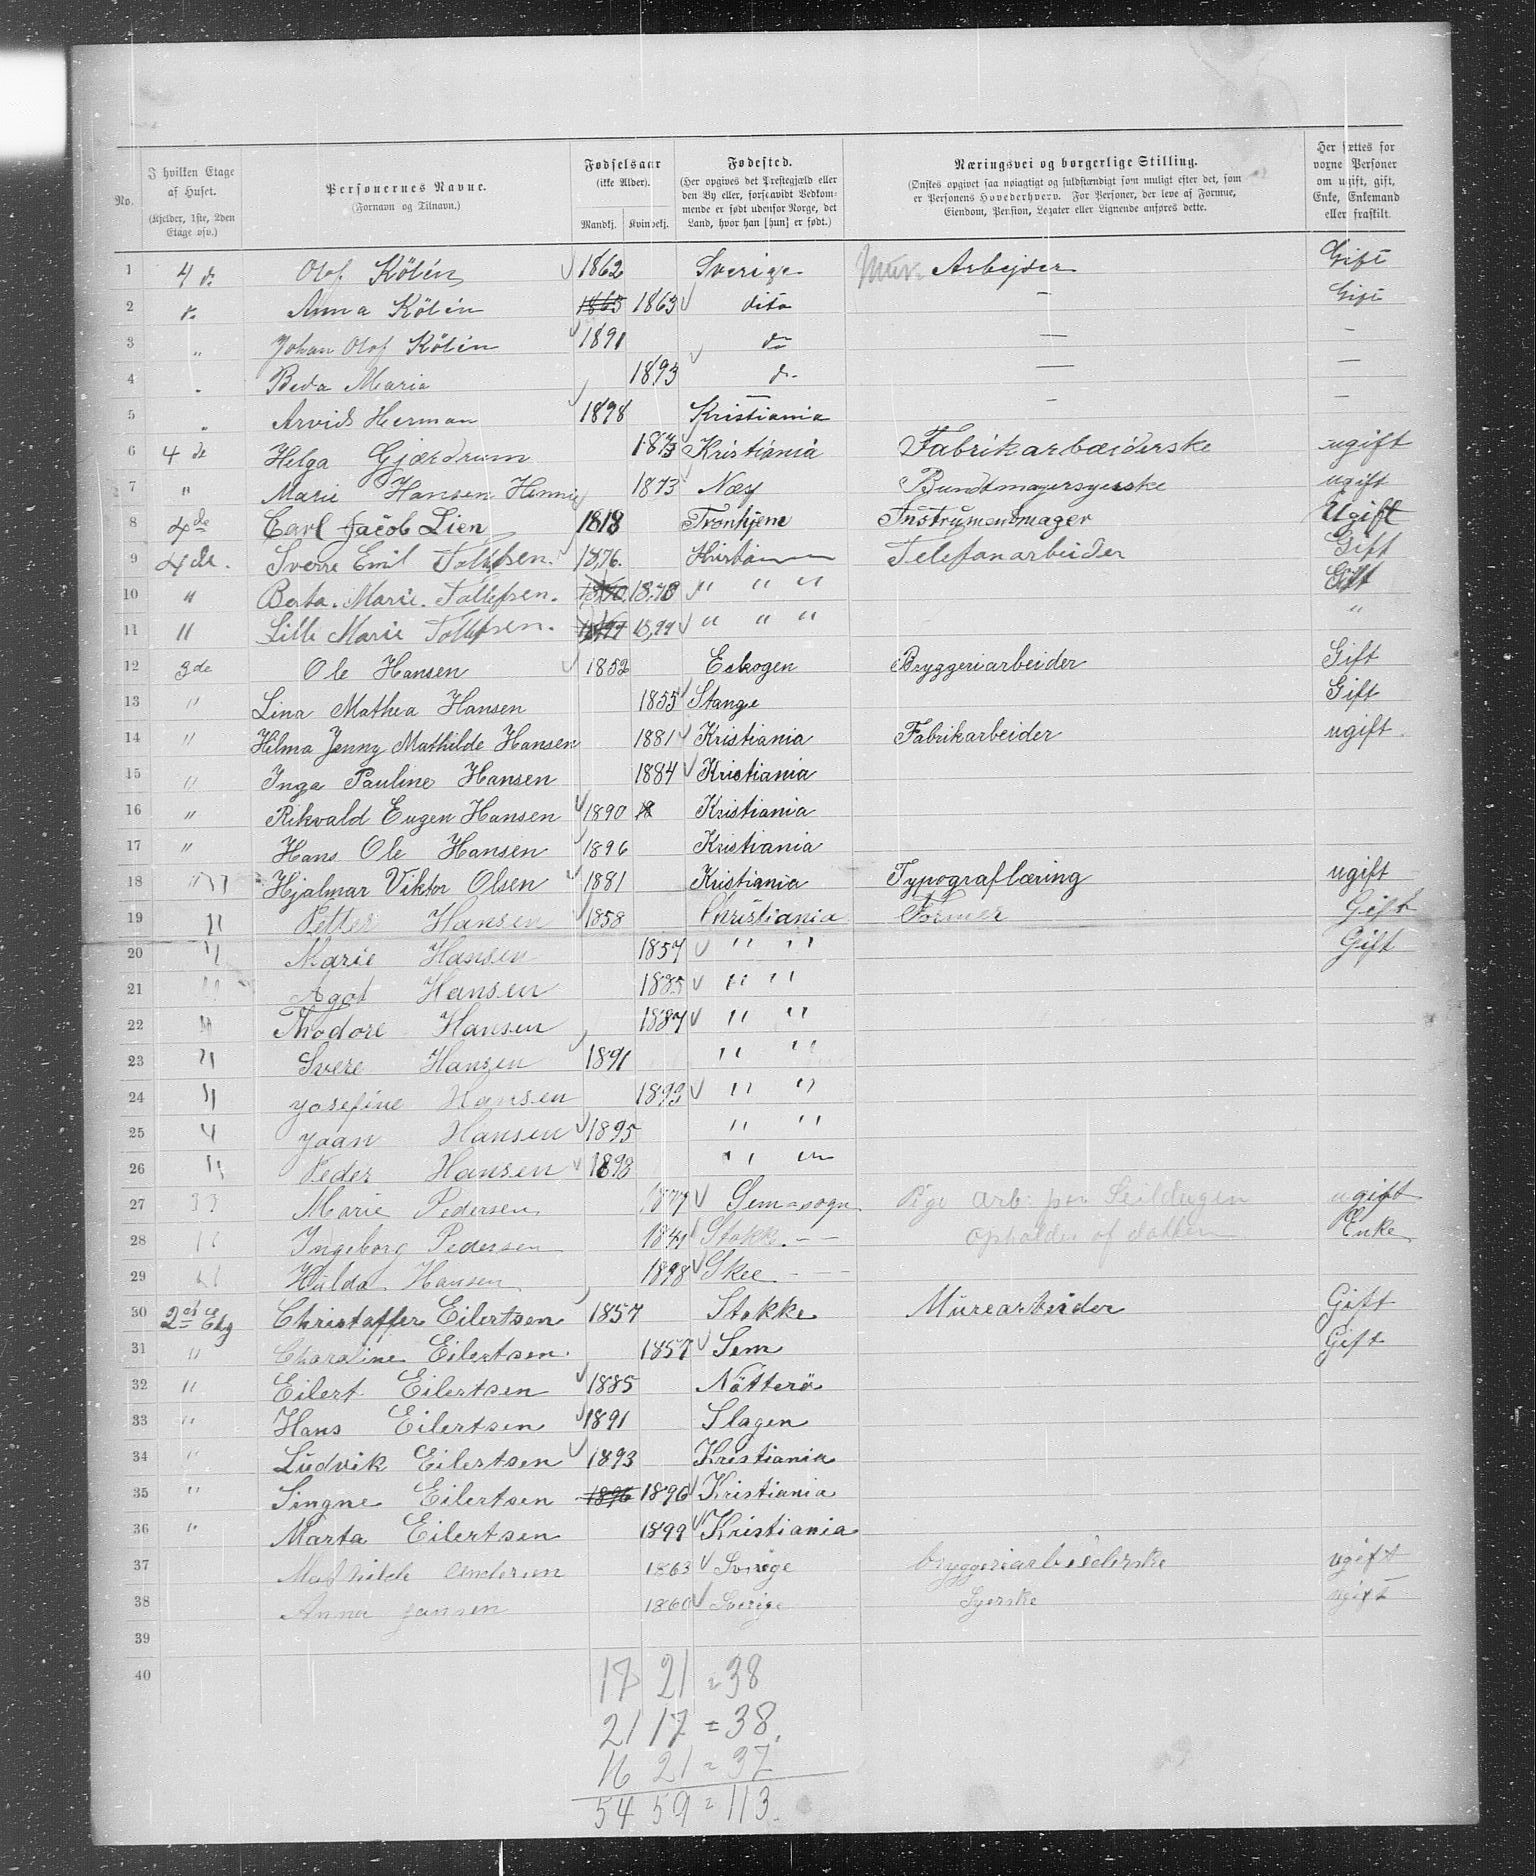 No.
I hvilken Etage af Huset. (Kjelder, 1ste, 2den Etage osv.)
Personernes Navne. (Fornavn og Tilnavn.)
Fødselsaar (ikke Alder). Mandkj. Kvindekj.
Fødested. (Her opgives det Prestegjæld eller den By eller, forsaavidt Vedkommende er født udenfor Norge, det Land, hvor han [hun] er født.)
Næringsvei og borgerlige Stilling. (Ønskes opgivet saa nøiagtigt og fuldstændigt som muligt efter det, som er Personens Hovederhverv. For Personer, der leve af Formue, Eiendom, Pension, Legater eller Lignende anføres dette.)
Her sættes for voxne Personer om ugift, gift, Enke, Enkemand eller fraskilt.
1 4 d. Olof Kölén 1862 Sverige Mur. Arbejder Gift
2 Anna Kölén 1863 1863 dito — Gift
3 " Johan Olof Kölén 1891 do — —
4 Beda Maria 1893 d. — —
5 Arvid Herman 1898 Kristiania — —
6 4 de Helga Gjærdrum 1873 Kristiania Fabrikarbæiderske ugift
7 " Marie Hansen Hennie 1873 Næs Bundtmagersyerske ugift
8 4de Carl Jacob Lien 1818 Tronhjem Instrumentmager Ugift
9 4de. Sverre Emil Tollefsen. 1876. Telefonarbeider Gift
10 " Berta. Marie. Tollefsen. 1878 " " " Gift
11 " Lille Marie Tollefsen. 1899 1899 " " " "
12 3de Ole Hansen 1852 Eskogen Bryggeriarbeider Gift
13 " Lina Mathea Hansen 1855 Stange Gift
14 " Hilma Jenny Mathilde Hansen 1881 Kristiania Fabrikarbeider ugift
15 " Inga Pauline Hansen 1884 Kristiania
16 " Rikvald Eugen Hansen 1890 18 Kristiania
17 " Hans Ole Hansen 1896 Kristiania
18 " Hjalmar Viktor Olsen 1881 Kristiania Typograflæring ugift
19 " Petter Hansen 1858 Christiania Former Gift
20 " Marie Hansen 1857 " " Gift
21 " Agot Hansen 1885 " "
22 " Thodore Hansen 1887 " "
23 " Svere Hansen 1891 " "
24 " Josefine Hansen 1893 " "
25 " Joan Hansen 1895 " "
26 " Peder Hansen 1898 " "
27 Marie Pedersen 1877 Sem sogn Pige arb. paa Seildugen ugift
28 " Ingeborg Pedersen Stokke. — — opholdes af datter Enke
29 " Hulda Hansen 1898 Skee — —
30 2den Etg Christoffer Eilertsen 1857 Stokke Murearbeider Gift
31 " Charoline Eilertsen. 1857 Sem Gift
32 " Eilert Eilertsen 1885 Nötterö
33 " Hans Eilertsen 1891 Slagen
34 " Ludvik Eilertsen 1893 Kristiania
35 " Singne Eilertsen 1896 1896 Kristiania
36 " Marta Eilertsen 1899 Kristiania
37 Mathilde Andersen 1863 Sverige bryggeriarbeiderske ugift
38 Anna Jansen 1860 Sverige Syerske ugift
39
40
17 21 = 38
21 17 = 38.
16 21 = 37
54 59 = 113.